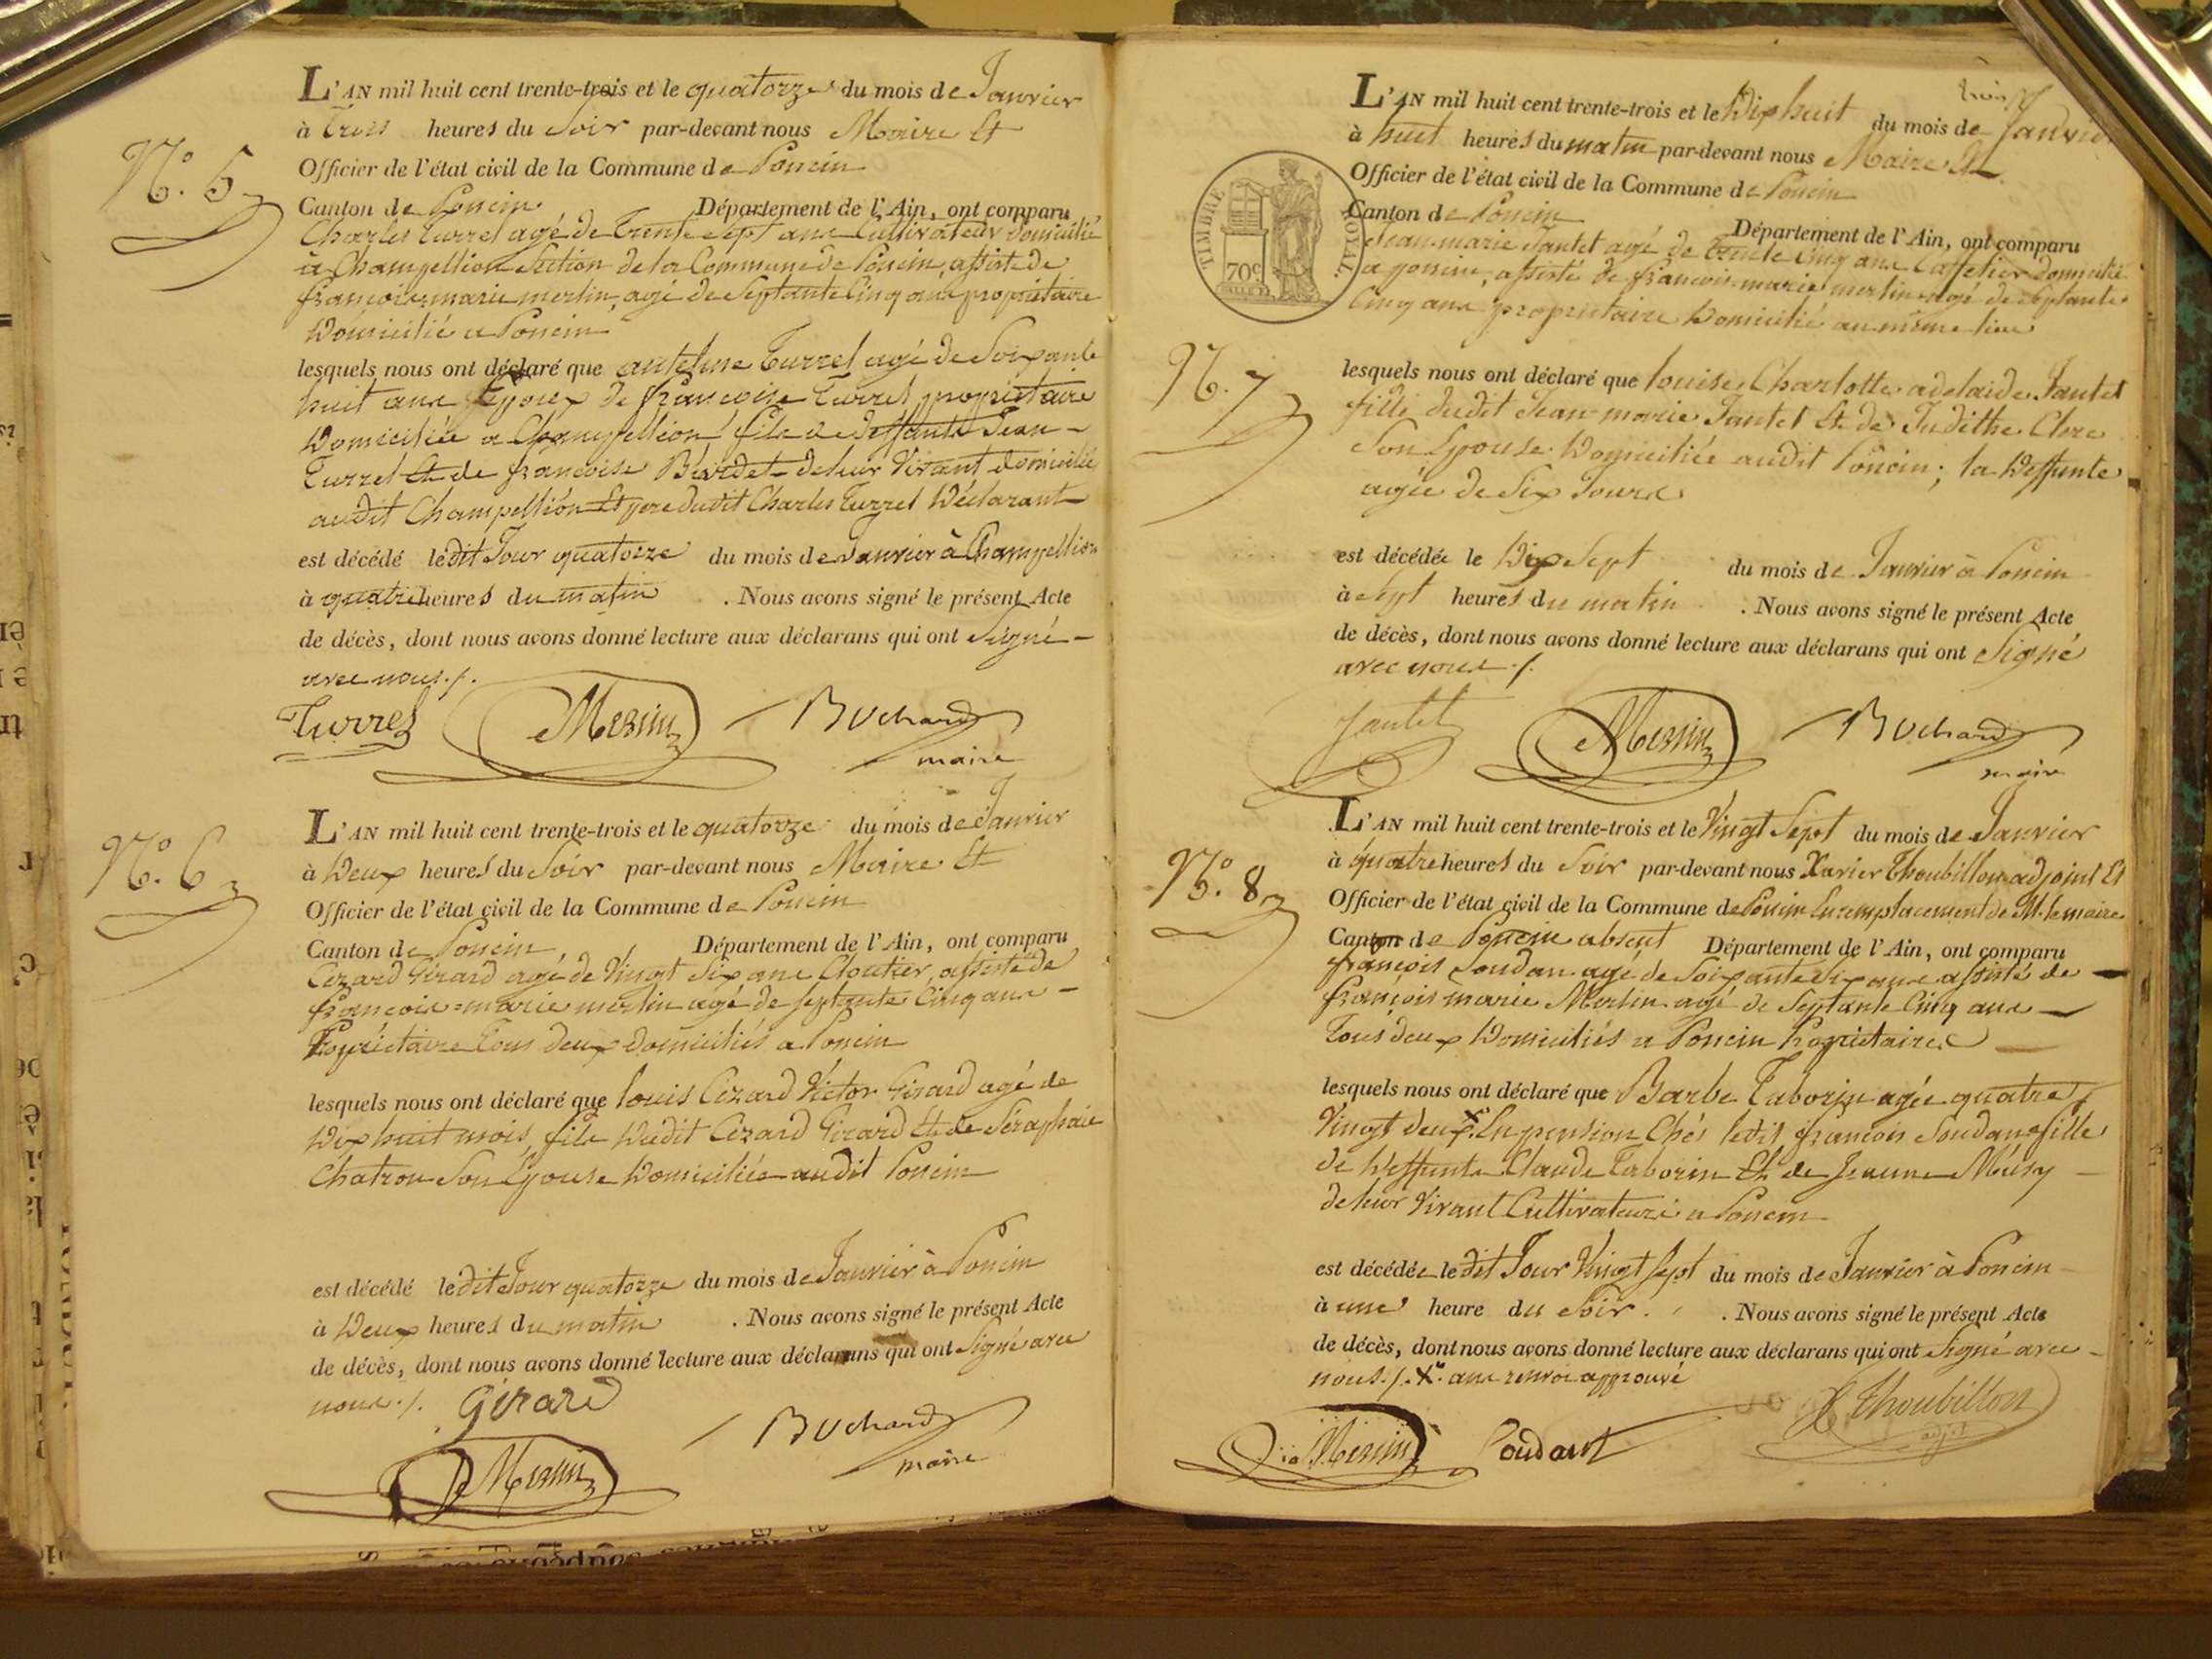 N.° 5
L'AN mil huit cent trente-trois et le quatorze du mois de Janvier
à trois heures du Soir par-devant nous Maire Et
Officier de l'état civil de la Commune de Poncin
Canton de Poncin Département de l'Ain, ont comparu
Charles Turrel agé de trente sept ans Cultivateur domicilié
à Champellion Section de la Commune de Poncin, assisté de
françois-marie merlin, agé de Septante Cinq ans propriétaire
Domicilié a Poncin
lesquels nous ont déclaré que antelme Turrel agé de Soixante
huit ans Epoux de françoise Turrel propriétaire
Domiciliée a Champellion, fils de deffunts Jean
Turrel Et de françoise Bardet de leur Vivant domiciliés
audit Champellion Et pere dudit Charles Turrel Déclarant
est décédé ledit Jour quatorze du mois de Janvier à Champellion
à quatre heures du matin . Nous avons signé le présent Acte
de décès, dont nous avons donné lecture aux déclarans qui ont Signé
avec nous ./.
Turrel Merlin Bochard
maire
N.° 6
L'AN mil huit cent trente-trois et le quatorze du mois de Janvier
à Deux heures du Soir par-devant nous Maire Et
Officier de l'état civil de la Commune de Poncin
Canton de Poncin Département de l'Ain, ont comparu
Cézard Girard agé de Vingt Six ans Cloutier, assisté de
françois=marie merlin agé de septante Cinq ans
Propriétaire Tous deux domiciliés a Poncin
lesquels nous ont déclaré que louis Cézard Victor Girard agé de
Dix huit mois, fils Dudit Cézard Girard Et de Séraphie
Chatron Son Epouse Domiciliée audit Poncin
est décédé ledit Jour quatorze du mois de Janvier à Poncin
à Deux heures du matin . Nous avons signé le présent Acte
de décès, dont nous avons donné lecture aux déclarans qui ont Signé avec
nous ./. Girard
Merlin Bochard
maire
trois
TIMBRE ROYAL
70c
N. 7
L'AN mil huit cent trente-trois et le Dix huit du mois de Janvier
à huit heures du matin par-devant nous Maire Et
Officier de l'état civil de la Commune de Poncin
Canton de Poncin Département de l'Ain, ont comparu
Jean-marie Jantet agé de trente Cinq ans Caffetier domicilié
a poncin, assisté de françois-marie merlin agé de Septante
Cinq ans propriétaire Domicilié au même lieu
lesquels nous ont déclaré que louise Charlotte adelaide Jantet
fille dudit Jean-marie Jantet Et de Judithe Clerc
Son Epouse Domiciliée audit Poncin; la Deffunte
agée de Six Jours
est décédée le Dix Sept du mois de Janvier à Poncin
à Sept heures du matin . Nous avons signé le présent Acte
de décès, dont nous avons donné lecture aux déclarans qui ont Signé
avec nous ./.
Jantet Merlin Bochard
maire
N.° 8
L'AN mil huit cent trente-trois et le Vingt Sept du mois de Janvier
à quatre heures du Soir par-devant nous Xavier Thoubillon adjoint Et
Officier de l'état civil de la Commune de Poncin En remplacement de M. le maire
Canton de Poncin absent Département de l'Ain, ont comparu
françois Soudan agé de Soixante Six ans assisté de
françois marie Merlin agé de Septante Cinq ans
Tous deux Domiciliés a Poncin Propriétaires
lesquels nous ont déclaré que Barbe Taborin agée quatre
Vingt deux x En pension Chés ledit françois Soudan fille
de Deffunts Claude Taborin Et de Jeanne Musy
de leur Vivant Cultivateurs a Poncin
est décédée ledit Jour Vingt Sept du mois de Janvier à Poncin
à une heure du Soir . Nous avons signé le présent Acte
de décès, dont nous avons donné lecture aux déclarans qui ont Signé avec
nous ./. x ans renvoi approuvé
Merlin Soudant X Thoubillon
adjt